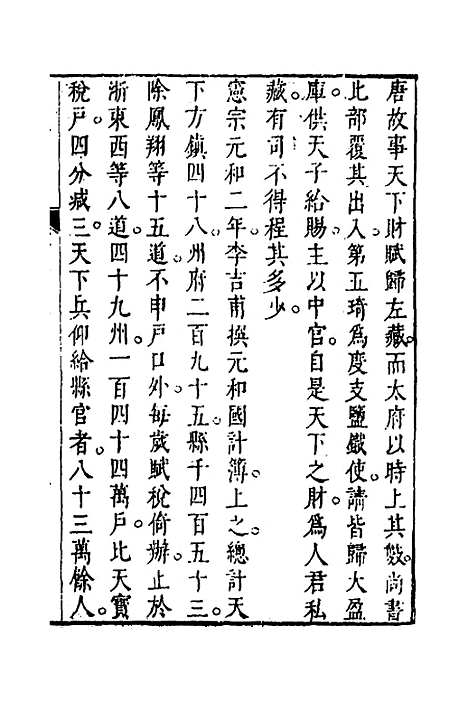 唐故事天下財賦歸左藏。而太府以時上其數。尚書
比部覆其出入。第五琦爲度支鹽鐵使。請皆歸大盈
庫。供天子給賜。主以中官。自是天下之財。爲人君私
藏。有司不得程其多少。
憲宗元和二年。李吉甫撰元和國計簿。上之。總計天
下方鎮四十八。州府二百九十五。縣千四百五十三。
除鳳翔等十五道不申戸口外。每歲賦稅倚辦。止於
浙東西等八道。四十九州。一百四十四萬戸。比天寶
稅戸四分减三。天下兵仰給縣官者。八十三萬餘人。